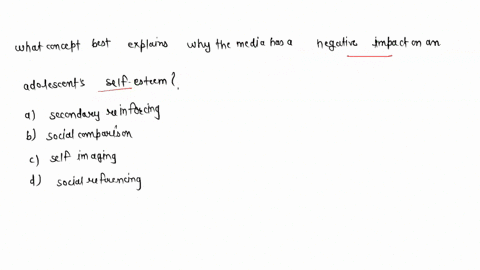 what concept best explains why the media has a negative impact on an
adolescent's self-esteem?
a) secondary reinforcing
b) social comparison
c) self imaging
d) social referencing